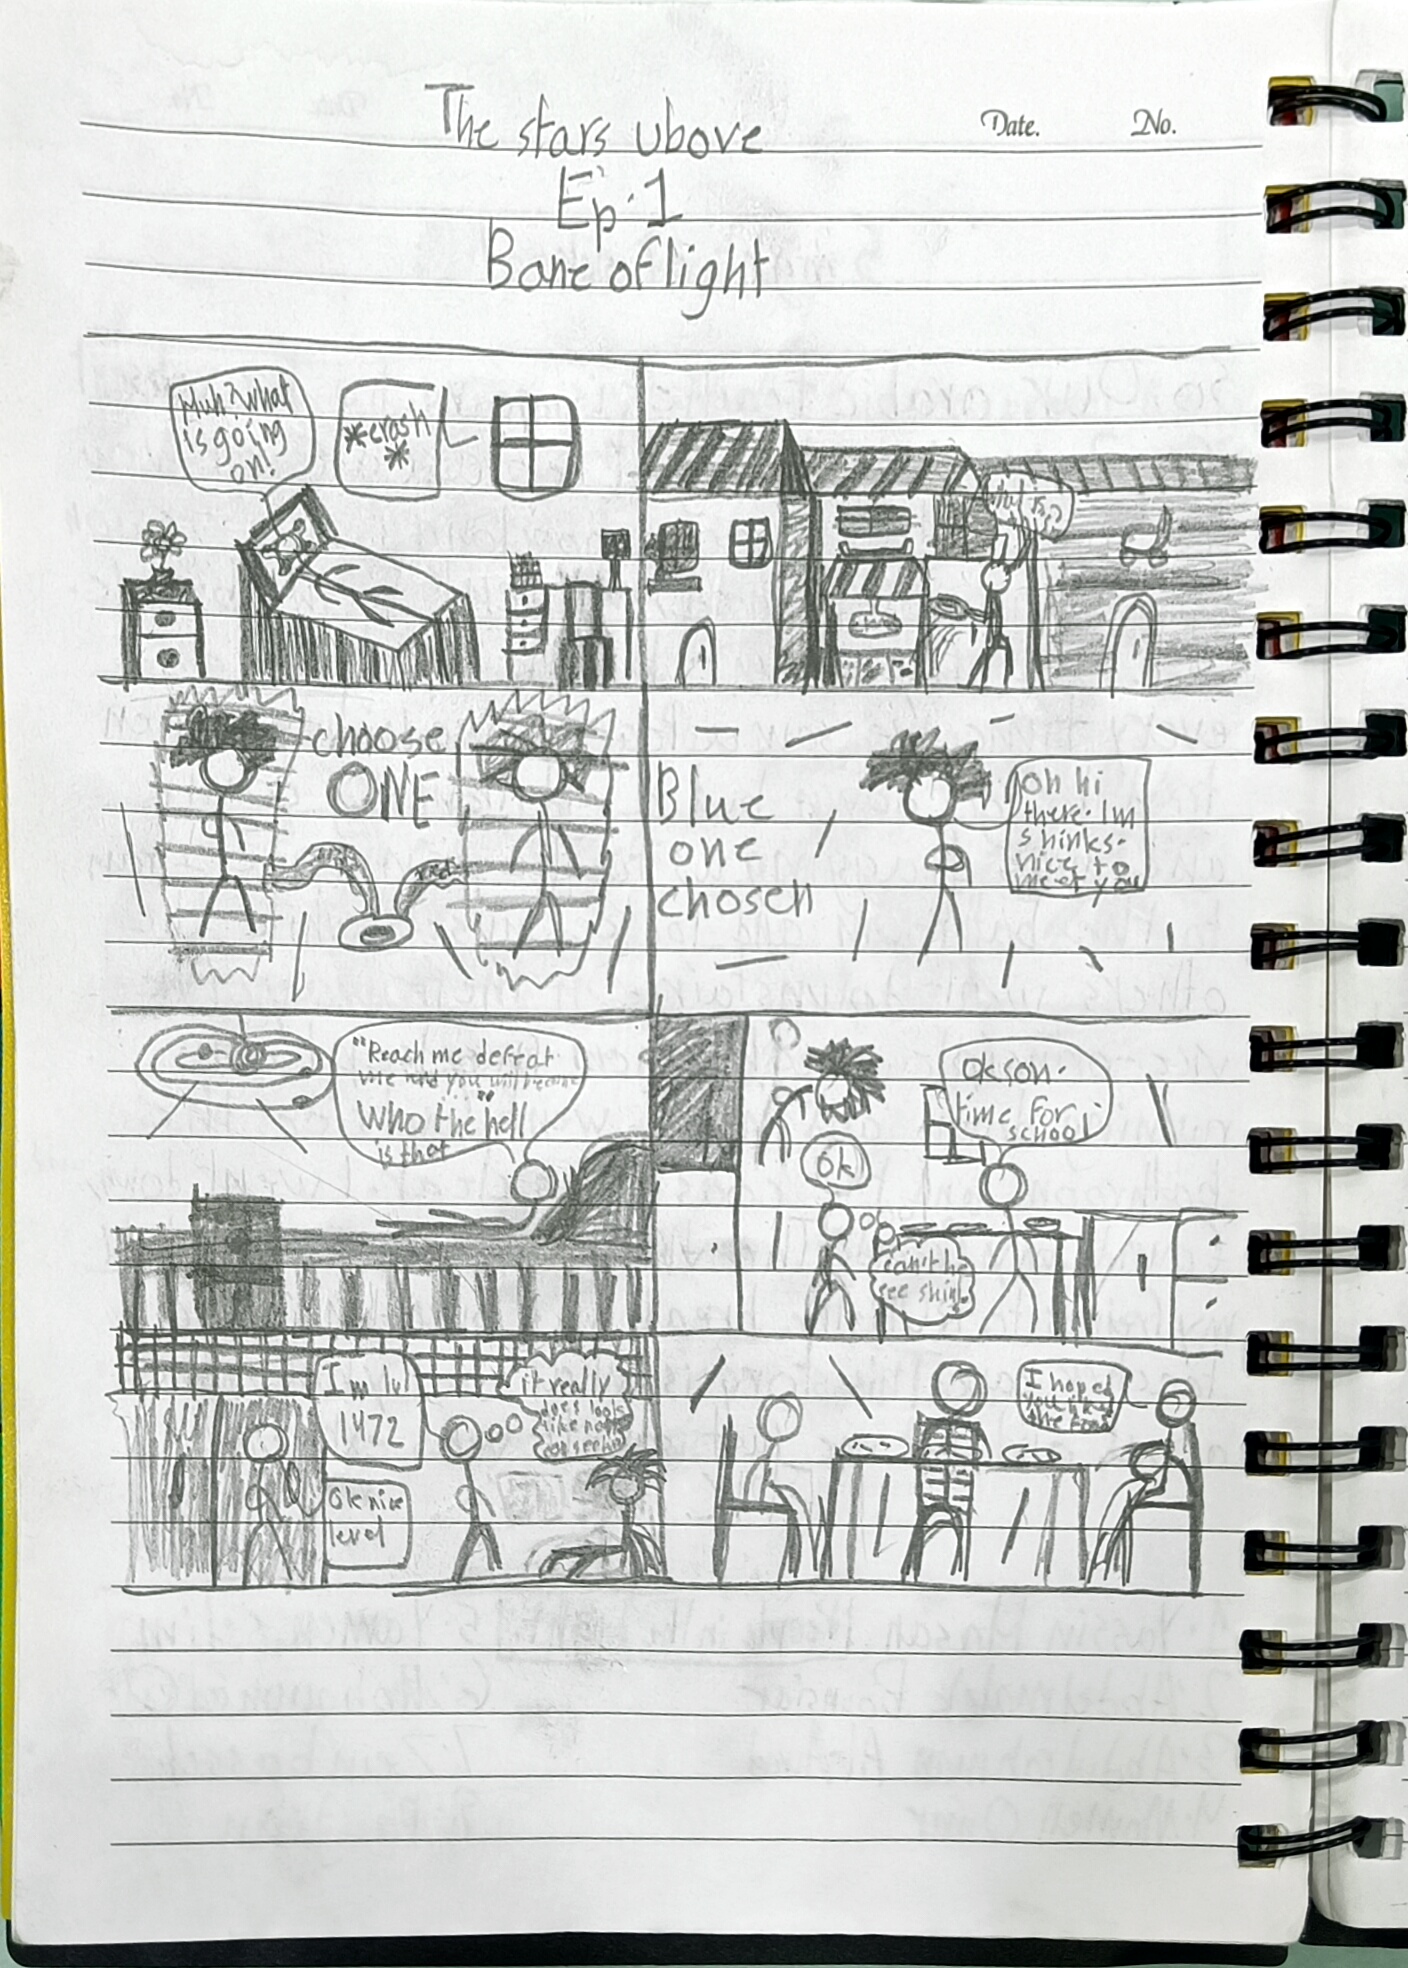 The stars ubove
Date. No.
Ep.1
Bane of light
Huh? what
is going
on!
*crash
*
choose
ONE
red
Blue
one
chosen
oh hi
there. Im
shinks.
nice to
meet you
"Reach me defeat
me and you will become
"
Who the hell
is that
ok son.
time for
school
ok
can't he
see shink
I m lvl
1472
ok nice
level
it really
does look
like no
I hoped
you like
the food